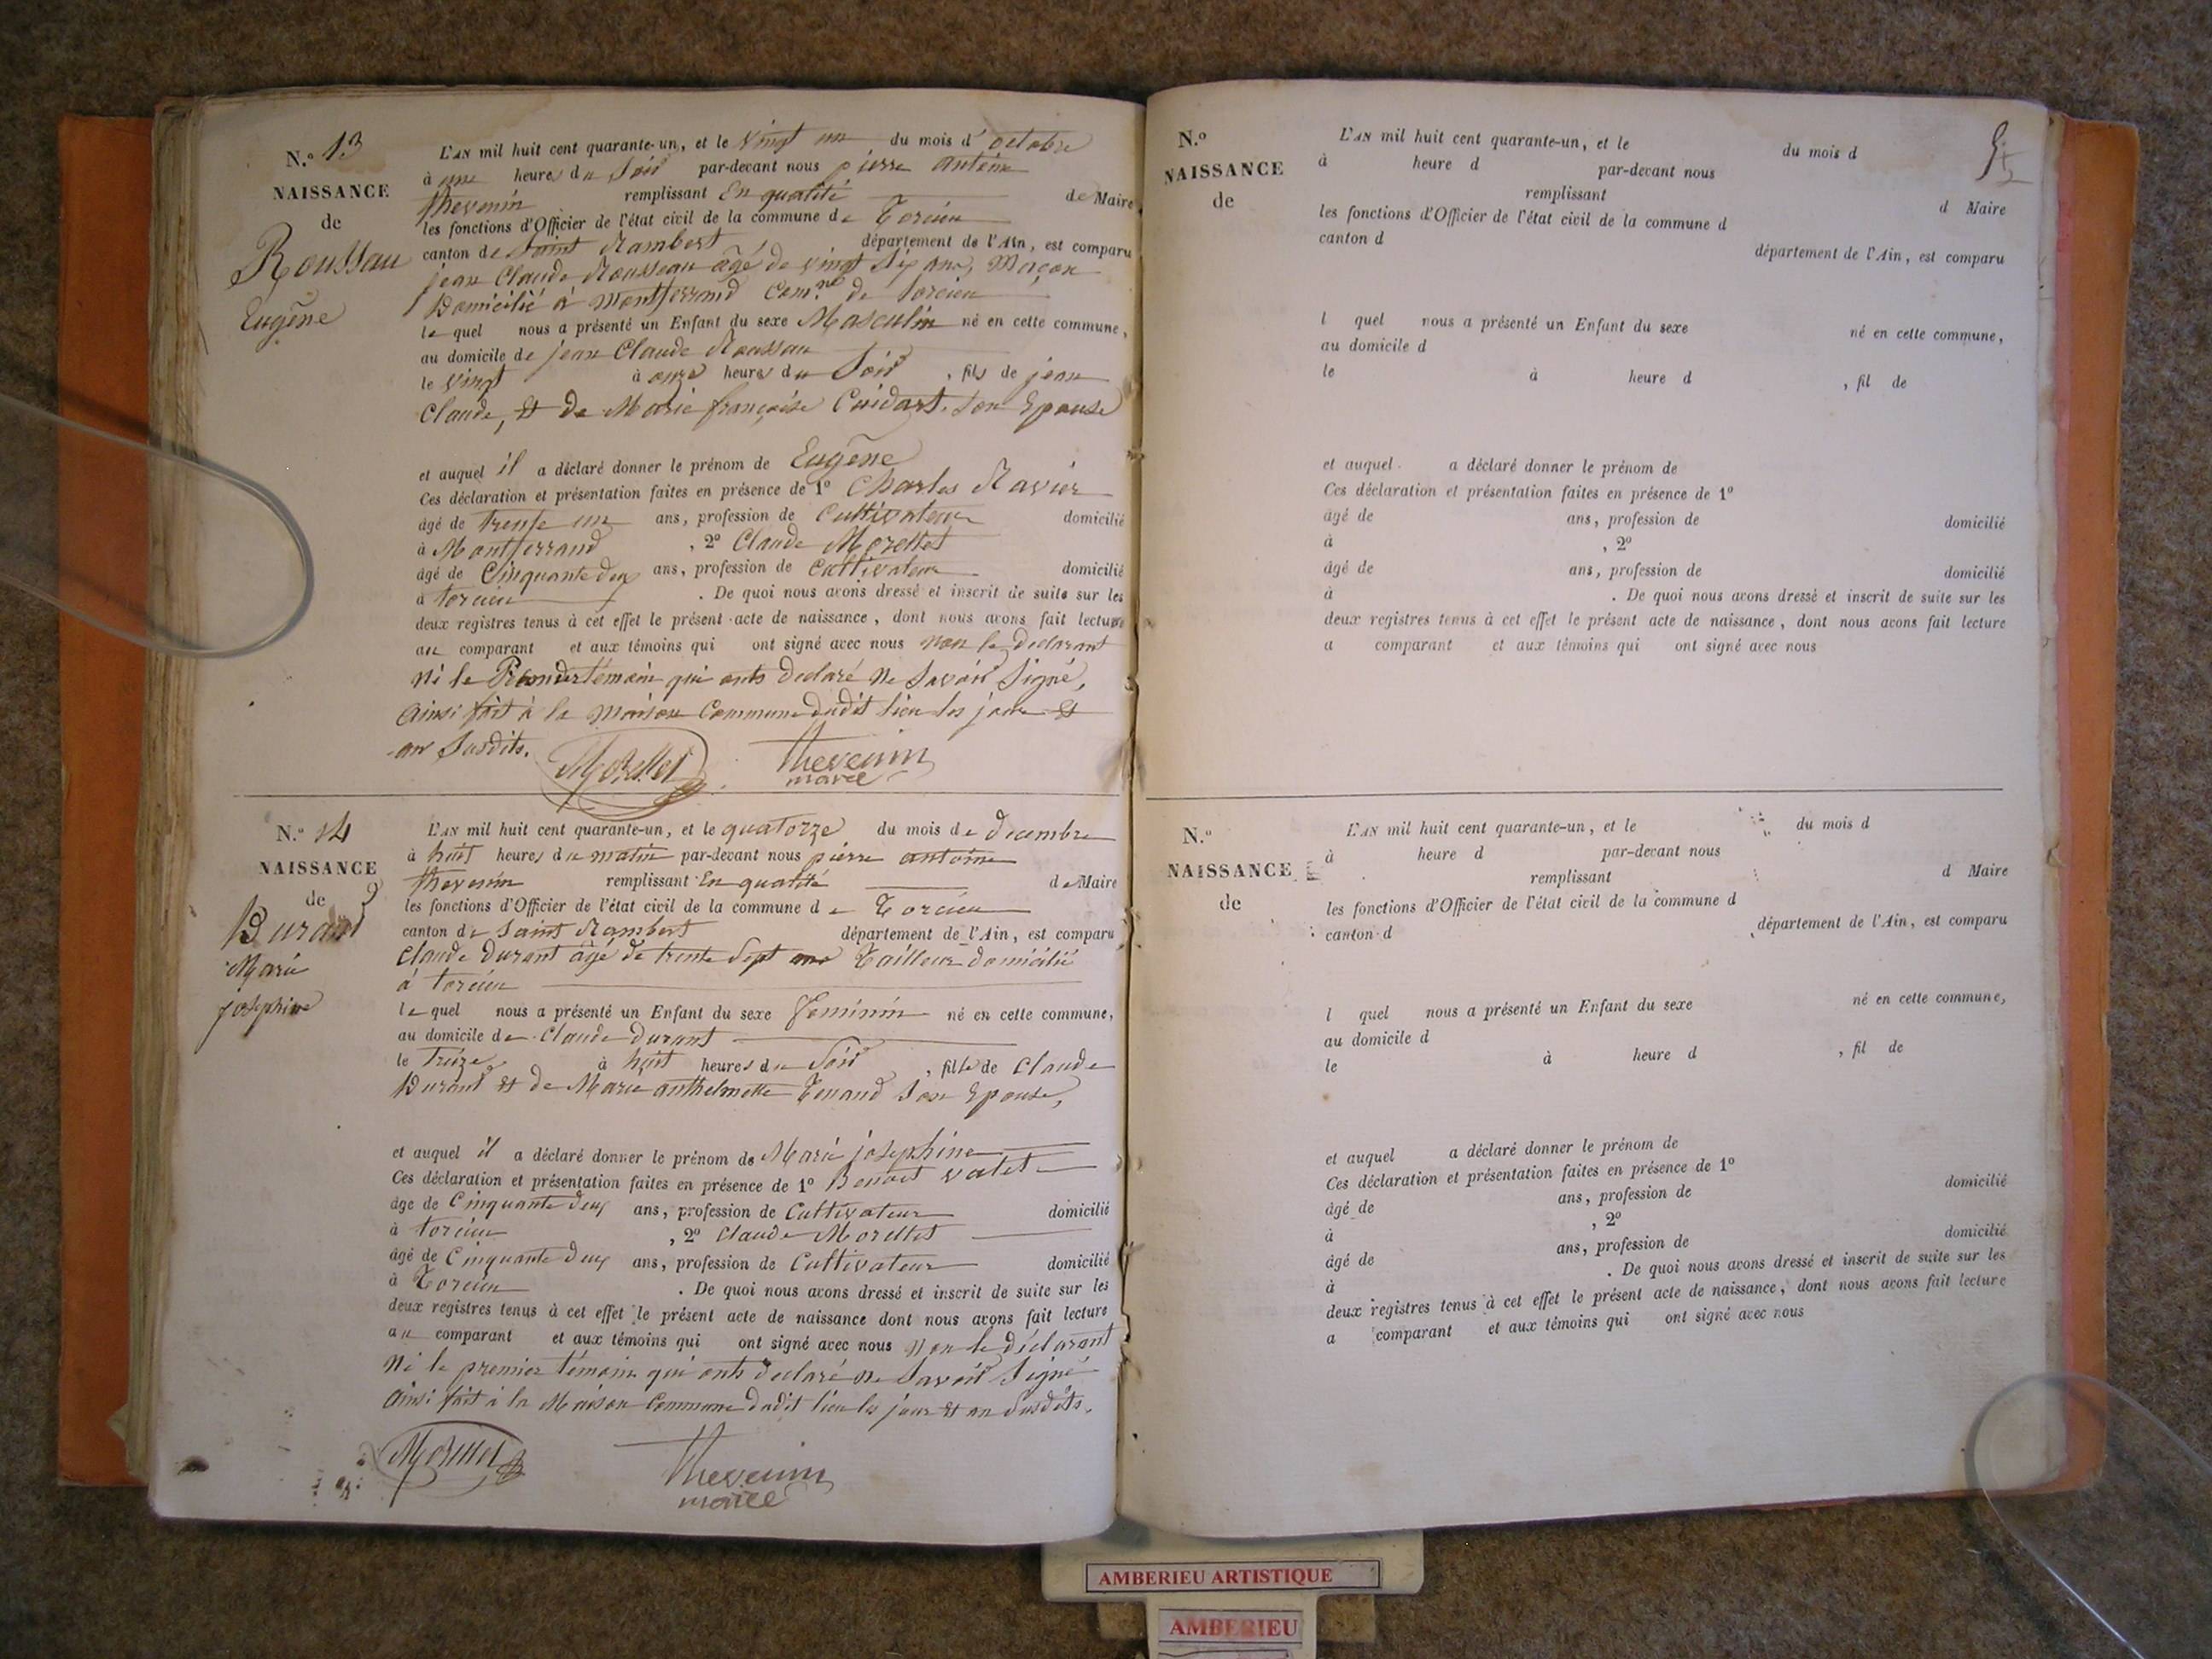 N.º 13
NAISSANCE
de
Roussau
Eugène
L'AN mil huit cent quarante-un, et le vingt un du mois d' octobre
à une heure du Soir par-devant nous pierre antoine
thevenin remplissant En qualité de Maire
les fonctions d'Officier de l'état civil de la commune de Torcieu
canton de Saint Rambert département de l'Ain, est comparu
jean Claude Rousseau âgé de vingt Six ans, Maçon
Domicilié à Montferrand Com.ne de Torcieu
le quel nous a présenté un Enfant du sexe Masculin né en cette commune,
au domicile de jean Claude Roussau
le vingt à onze heures du Soir, fils de jean
Claude, et de Marie françoise Cuidart, Son Epouse
et auquel il a déclaré donner le prénom de Eugène
Ces déclaration et présentation faites en présence de 1º Charles Ravier
âgé de trente un ans, profession de Cultivateur domicilié
à Montferrand, 2º Claude Morellet
âgé de Cinquante deux ans, profession de Cultivateur domicilié
à torcieu. De quoi nous avons dressé et inscrit de suite sur les
deux registres tenus à cet effet le présent acte de naissance, dont nous avons fait lecture
au comparant et aux témoins qui ont signé avec nous non le declarant
ni le Premier témoin qui onts declaré ne Savoir Signé,
ainsi fait à la Maison Commune dudit lieu les jour et
an Susdits.
Morellet thevenin
maire
N.º 14
NAISSANCE
de
Durand
Marie
josephine
L'AN mil huit cent quarante-un, et le quatorze du mois de decembre
à huit heures du matin par-devant nous pierre antoine
thevenin remplissant En qualité de Maire
les fonctions d'Officier de l'état civil de la commune de Torcieu
canton de Saint Rambert département de l'Ain, est comparu
Claude Durant âgé de trente Sept ans Tailleur domicilié
à torcieu
le quel nous a présenté un Enfant du sexe Feminin né en cette commune,
au domicile de Claude Durant
le Treize à huit heures du Soir, fille de Claude
Durant et de Marie anthelmette Tenand Son Epouse,
et auquel il a déclaré donner le prénom de Marie josephine
Ces déclaration et présentation faites en présence de 1º Benoit valet
âge de Cinquante deux ans, profession de Cultivateur domicilié
à torcieu, 2º Claude Morellet
âgé de Cinquante deux ans, profession de Cultivateur domicilié
à Torcieu. De quoi nous avons dressé et inscrit de suite sur les
deux registres tenus à cet effet le présent acte de naissance dont nous avons fait lecture
au comparant et aux témoins qui ont signé avec nous non le déclarant
ni le premier témoin qui onts declaré ne Savoir Signé
ainsi fait à la Maison Commune dudit lieu les jour et an Susdits.
Morellet thevenin
maire
N.º
NAISSANCE
de
L'AN mil huit cent quarante-un, et le du mois d
à heure d par-devant nous
remplissant d Maire
les fonctions d'Officier de l'état civil de la commune d
canton d département de l'Ain, est comparu
l quel nous a présenté un Enfant du sexe né en cette commune,
au domicile d
le à heure d , fil de
et auquel a déclaré donner le prénom de
Ces déclaration et présentation faites en présence de 1º
âgé de ans, profession de domicilié
à , 2º
âgé de ans, profession de domicilié
à . De quoi nous avons dressé et inscrit de suite sur les
deux registres tenus à cet effet le présent acte de naissance, dont nous avons fait lecture
a comparant et aux témoins qui ont signé avec nous
N.º
NAISSANCE
de
L'AN mil huit cent quarante-un, et le du mois d
à heure d par-devant nous
remplissant d Maire
les fonctions d'Officier de l'état civil de la commune d
canton d département de l'Ain, est comparu
l quel nous a présenté un Enfant du sexe né en cette commune,
au domicile d
le à heure d , fil de
et auquel a déclaré donner le prénom de
Ces déclaration et présentation faites en présence de 1º
âgé de ans, profession de domicilié
à , 2º
âgé de ans, profession de domicilié
à . De quoi nous avons dressé et inscrit de suite sur les
deux registres tenus à cet effet le présent acte de naissance, dont nous avons fait lecture
a comparant et aux témoins qui ont signé avec nous
AMBERIEU ARTISTIQUE
AMBERIEU